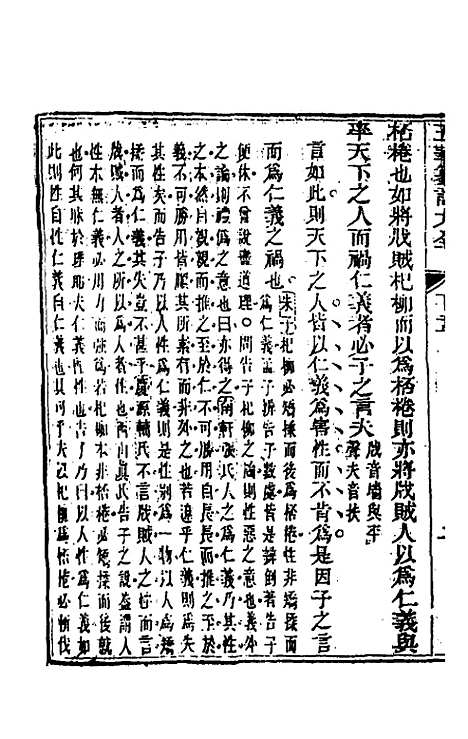 桮棬也如將戕賊杞柳而以爲桮棬則亦將戕賊人以爲仁義與
率天下之人而禍仁義者必子之言夫
戕音墻與平
聲夫音扶
言如此則天下之人皆以仁義爲害性而不肯爲是因子之言
而爲仁義之禍也
朱子杞柳必矯揉而後爲桮棬性非矯揉而
爲仁義孟子辨告子數處皆是辯倒著告子
便休不曾說盡道理 問告子杞柳之論則性惡之意也義外
之論則禮爲之意也曰亦得之 南軒張氏人之爲仁義乃其性
之本然自親親而推之至於仁不可勝用自長長而推之至於
義不可勝用皆其所素有而非外之也若違乎仁義則爲失
其性矣而告子乃以人性爲仁義則是性別爲一物以人爲矯
揉而爲仁義其失豈不甚乎 輔氏不言戕賊人之性而言
戕賊人者人之所以爲人者性也 西山眞氏告子之說蓋謂人
性本無仁義必用力而後爲若杞柳本非桮棬必矯揉而後就
也何其昧於理邪夫仁義性也告子乃曰以人性爲仁義如
此則性自性仁義自仁義也其可乎夫以杞柳爲桮棬必斬伐